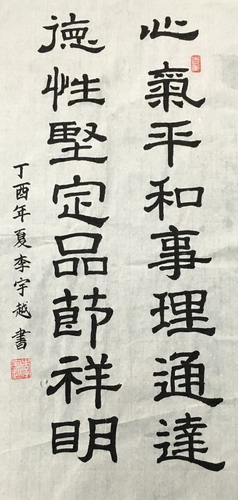 心氣平和事理通達
德性堅定品節祥明
丁酉年夏李宇越書